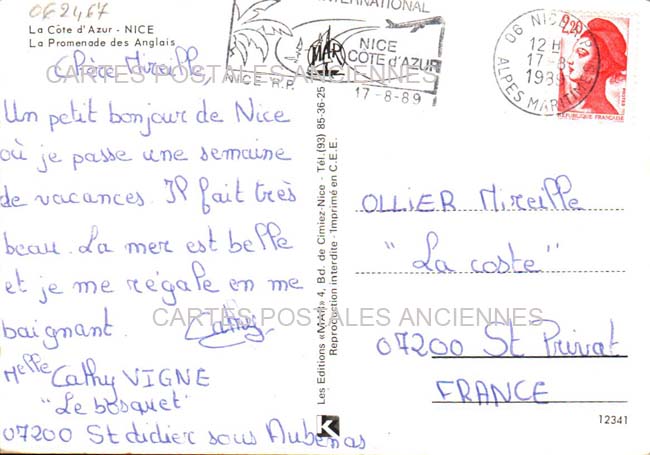 062467
La Côte d'Azur - NICE
La Promenade des Anglais
Chère Mireille,
Un petit bonjour de Nice
où je passe une semaine
de vacances. Il fait très
beau. La mer est belle
et je me régale en me
baignant.
Cathy
Melle Cathy VIGNE
"Le bosquet"
07200 St didier sous Aubenas
INTERNATIONAL
MAR
NICE
COTE d'AZUR
NICE R.P.
17-8-89
06 NICE R.P.
12H
17-8
1989
ALPES MARITIMES
2,20
REPUBLIQUE FRANÇAISE
Les Editions «MAR» 4, Bd. de Cimiez-Nice - Tél.(93) 85-36-25
Reproduction interdite - Imprimé en C.E.E.
OLLIER Mireille
"La coste"
07200 St Privat
FRANCE
K
12341
CARTES POSTALES ANCIENNES
CARTES POSTALES ANCIENNES